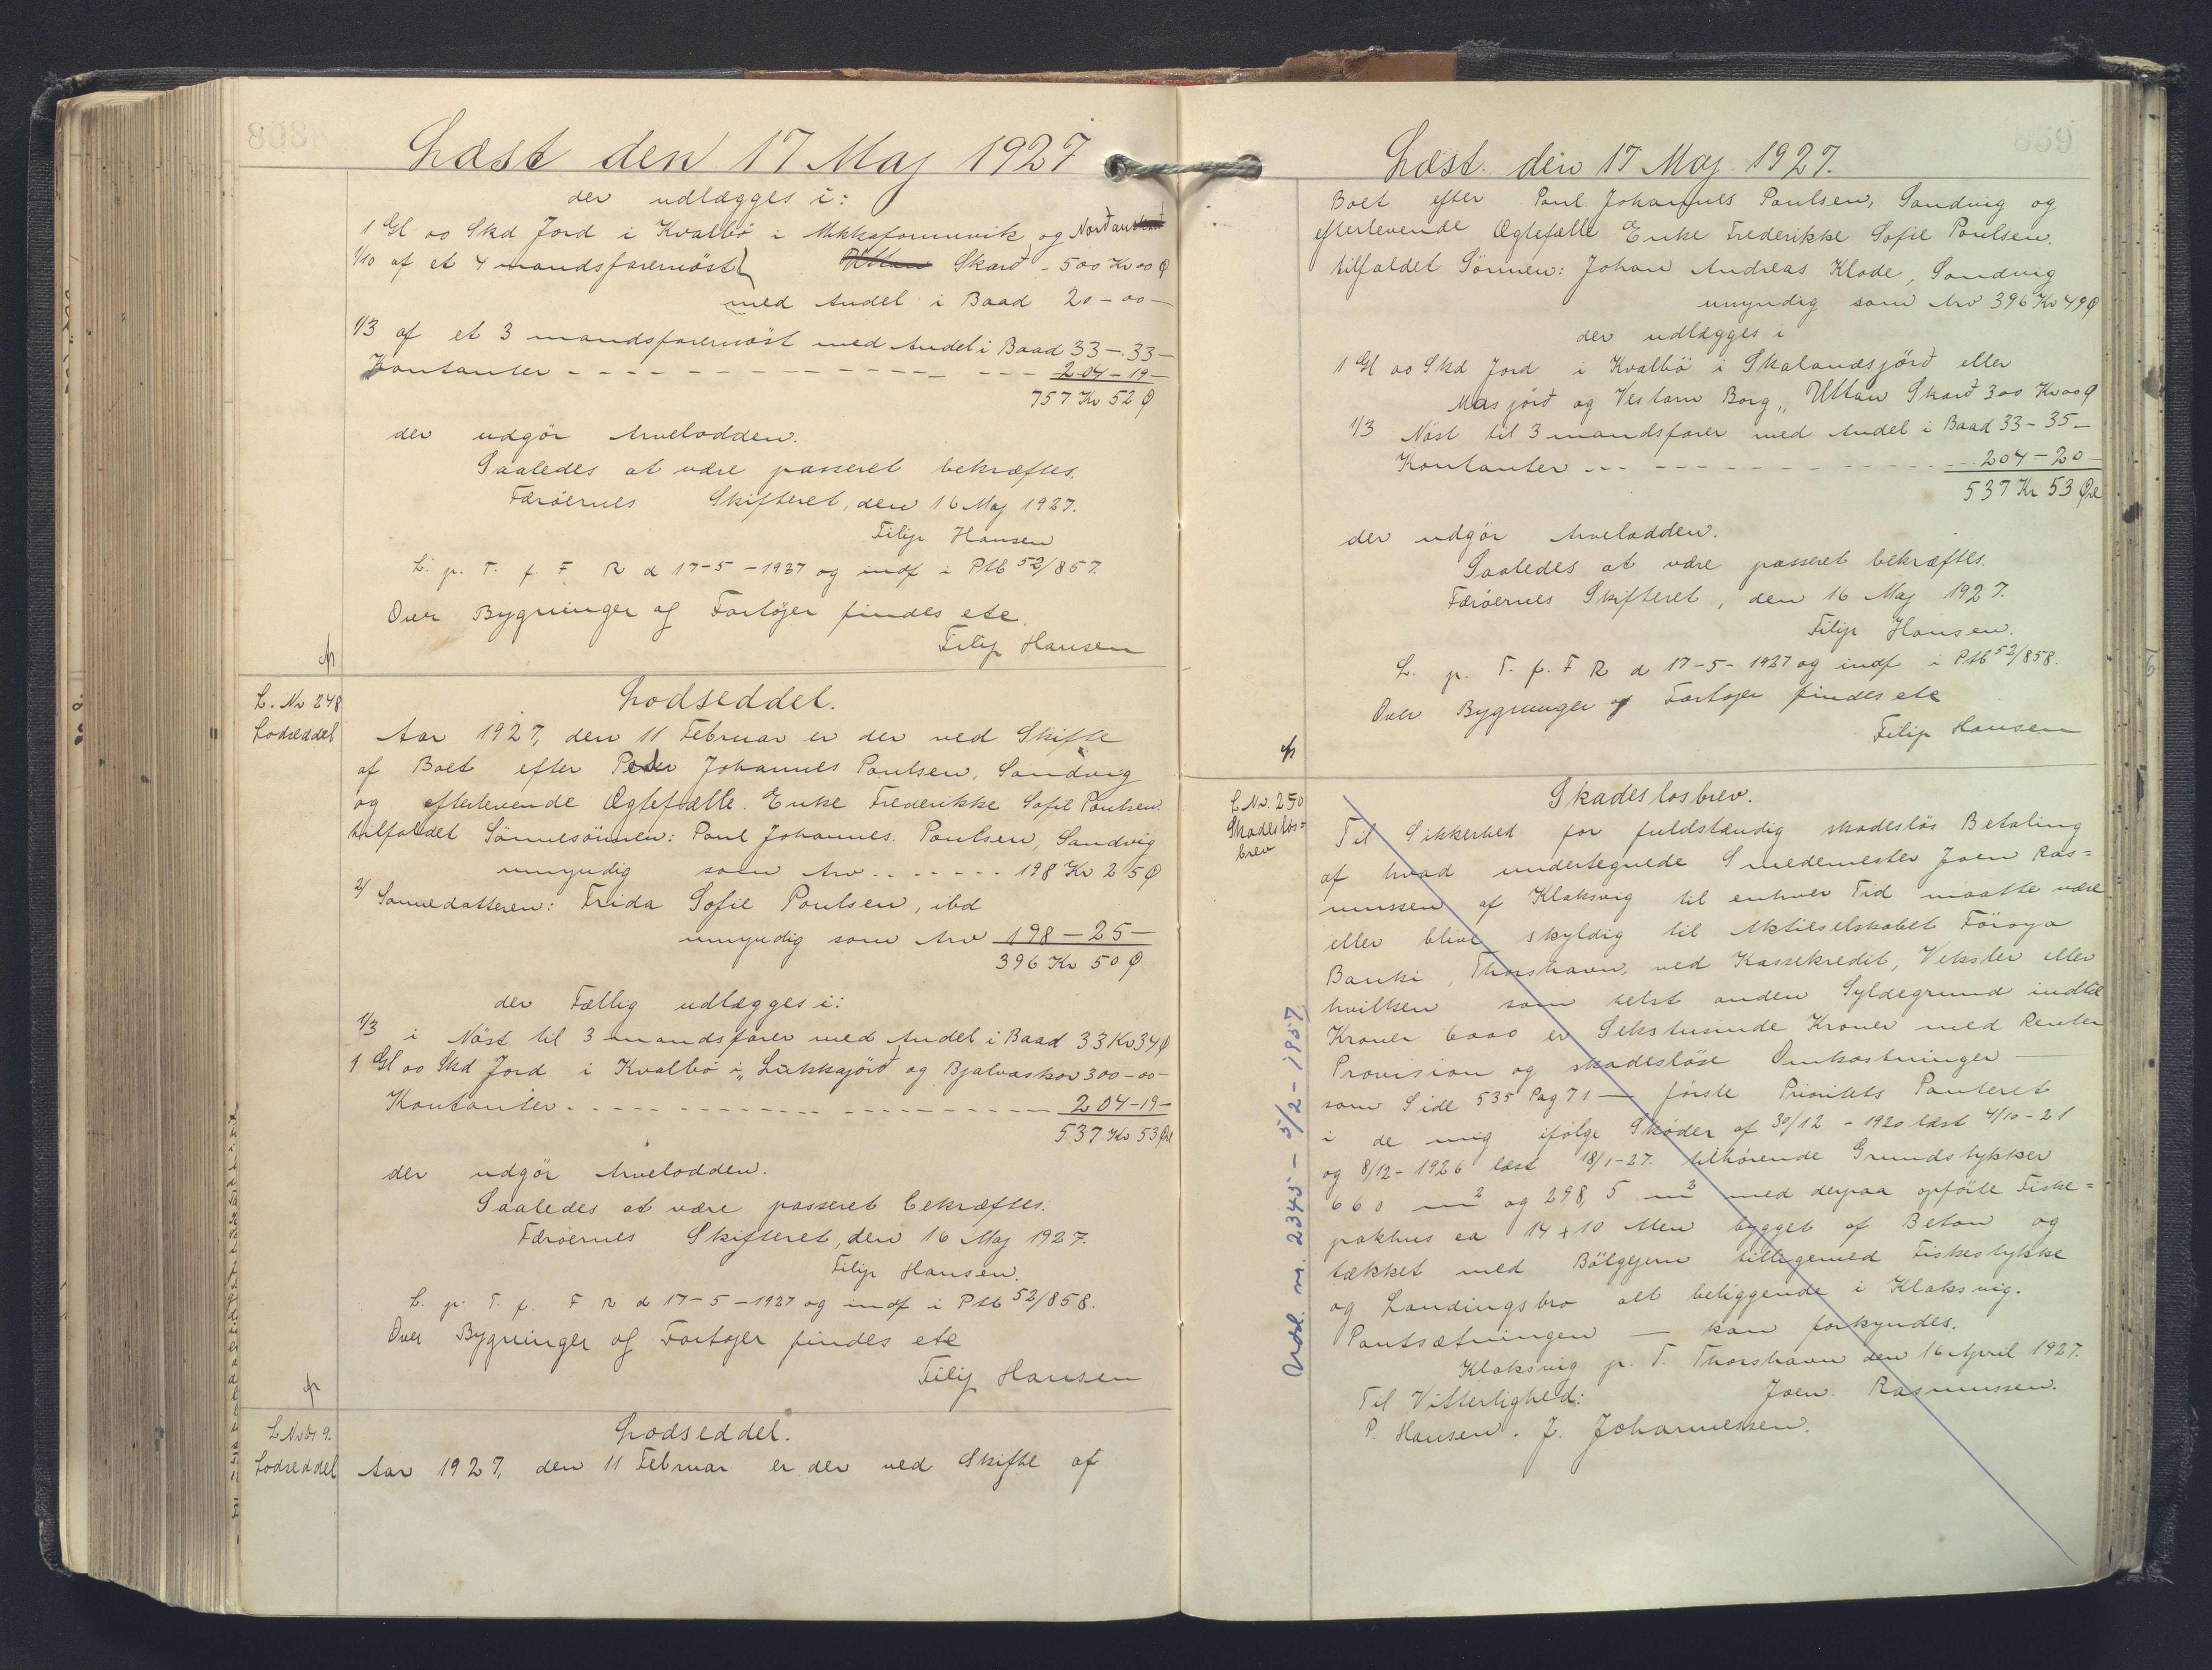 858
Læst den 17 Maj 1927
der udlægges i:
1 Gl oo Skd Jord i Kvalbø i Mikkaformuvik og Norðan
1/10 af et 4 mandsfarernöst Uttan Skarð - 500 Kr 00 Ø
med Andel i Baad 20 - 00 -
1/3 af et 3 mandsfarernöst med Andel i Baad 33 - 33 -
Kontanter - - - - 204 - 19 -
757 Kr 52 Ø
der udgör Arvelodden.
Saaledes at være passeret bekræftes.
Færöernes Skifteret, den 16 Maj 1927.
Filip Hansen
L. p. T. f. F R d 17-5-1927 og indf i Ptb 52/857.
Over Bygninger og Fartöjer findes etc.
Filip Hansen
L. Nr 248
Lodseddel
Lodseddel.
Aar 1927, den 11 Februar er der ved Skifte
af Boet efter Peder Johannes Poulsen, Sandvig
og efterlevende Ægtefælle Enke Frederikke Sofie Poulsen.
tilfaldet Sönnesönnen: Poul Johannes Poulsen, Sandvig
umyndig som Arv . . . . . . 198 Kr 25 Ø
2/ Sønnedatteren: Frida Sofie Poulsen, ibd
umyndig som Arv 198 - 25 -
396 Kr 50 Ø
der Fællig udlægges i:
1/3 i Nöst til 3 mandsfarer med Andel i Baad 33 Kr 34 Ø
1 Gl oo Skd Jord i Kvalbø i „Lükkajörð og Bjalvaskor 300 - 00 -
Kontanter - - - - 204 - 19 -
537 Kr 53 Øre
der udgör Arvelodden.
Saaledes at være passeret bekræftes.
Færöernes Skifteret, den 16 Maj 1927.
Filip Hansen.
L. p. T. f. F R d 17-5-1927 og indf i Ptb 52/858.
Over Bygninger og Fartøjer findes etc
Filip Hansen
L Nr 249.
Lodseddel
Lodseddel.
Aar 1927, den 11 Februar er der ved Skifte af
859
Læst den 17 Maj 1927.
Boet efter Poul Johannes Poulsen, Sandvig og
efterlevende Ægtefælle Enke Frederikke Sofie Poulsen.
tilfaldet Sönnen: Johan Andreas Klode, Sandvig
umyndig som Arv 396 Kr 49 Ø
der udlægges i
1 Gl oo Skd Jord i Kvalbø i Skalandsjörð eller
Masjörð og Vestara Borg „ Uttan Skarð 300 Kr 00 Ø
1/3 Nöst til 3 mandsfarer med Andel i Baad 33 - 35 -
Kontanter - - - - 204 - 20
537 Kr 53 Øre
der udgör Arvelodden.
Saaledes at være passeret bekræftes.
Færöernes Skifteret, den 16 Maj 1927.
Filip Hansen.
L. p. T. f. F R d 17-5-1927 og indf i Ptb 52/858.
Over Bygninger og Fartøjer findes etc
Filip Hansen
L Nr. 250
Skadeslös=
brev
Skadeslosbrev.
Til Sikkerhed for fuldstændig skadeslös Betaling
af hvad undertegnede Smedemester Joen Ras=
mussen af Klaksvig til enhver Tid maatte være
eller blive skyldig til Aktieselskabet Föroya
Banki, Thorshavn, ved Kassekredit, Veksler eller
hvilken som helst anden Gyldegrund indtil
Kroner 6000 er Sekstusinde Kroner med Renter
Provision og skadeslöse Omkostninger
som Side 535 Pag 71 — förste Prioritets Panteret
i de mig ifölge Skøder af 30/12 - 1920 læst 4/10 - 21
og 8/12 - 1926 læst 18/1-27. tilhørende Grundstykker
660 m2 og 298,5 m2 med derpaa opförte Fiske=
pakhus ca 14 x 10 Alen bygget af Beton og
tækket med Bölgejern tilligemed Fiskestykke
og Landingsbro alt beliggende i Klaksvig.
Pantsætningen — kan forkyndes.
Klaksvig p. T. Thorshavn den 16 April 1927.
Til Vitterlighed: Joen Rasmussen.
P. Hansen. J. Johannessen.
Udsl. nr. 2345 - 5/2 - 1957